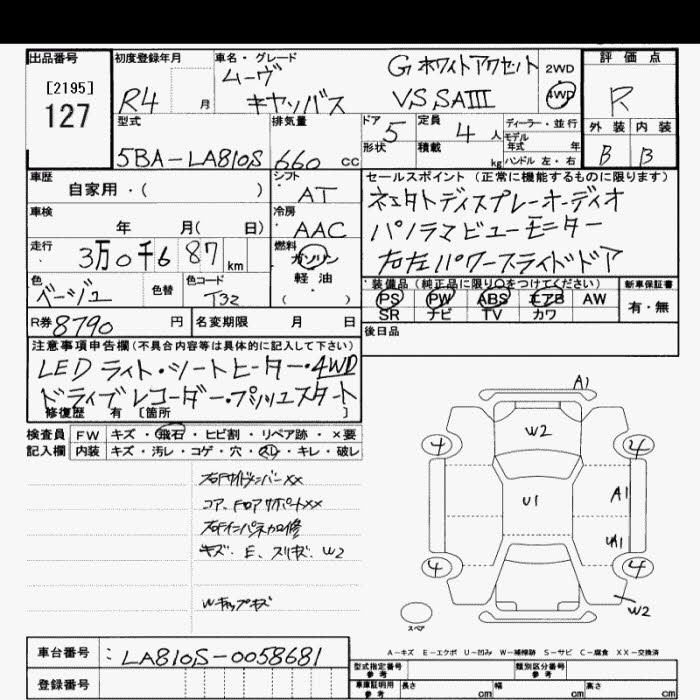 出品番号 初度登録年月 車名・グレード 評価点
[2195]
127
R4 月
ムーヴ
キャンバス
Gホワイトアクセント
VS SAIII
2WD
4WD
R
外装 内装
B B
型式 排気量 ドア 定員 ディーラー・並行
5BA-LA810S 660 cc 5 4人
モデル年式 年
形状 積載 kg ハンドル 左・右
車歴 シフト セールスポイント (正常に機能するものに限ります)
自家用・( ) AT
車検 冷房
年 月( 日) AAC
ディスプレーオーディオ
パノラマビューモニター
右左パワースライドドア
走行 燃料
3万0千6 87 km
ガソリン
軽油
( )
色 色替 色コード
ベージュ T32
装備品 (純正品に限り○をつけてください) 新車保証書
PS PW ABS エアB AW 有・無
SR ナビ TV カワ
R券 8790 円 名変期限 月 日 後日品
注意事項申告欄(不具合内容等は具体的に記入して下さい)
LEDライト・シートヒーター・4WD
ドライブレコーダー・プッシュスタート
修復歴 有 [箇所 ]
検査員 FW キズ・飛石・ヒビ割・リペア跡・×要
記入欄 内装 キズ・汚レ・コゲ・穴・スレ・キレ・破レ
右Fサイドメンバーxx
コア、Fロアサポートxx
右Fインパネカロ修
キズ、E、スリキズ、W2
Wキャップキズ
A1
W2
4 4
U1 A1
UA1
4 4
W2
スペア
A-キズ E-エクボ U-凹み W-補修跡 S-サビ C-腐食 XX-交換済
車台番号 : LA810S-0058681
登録番号
型式指定番号 参考 類別区分番号 参考
車庫証明用 参考 長さ cm 幅 cm 高さ cm